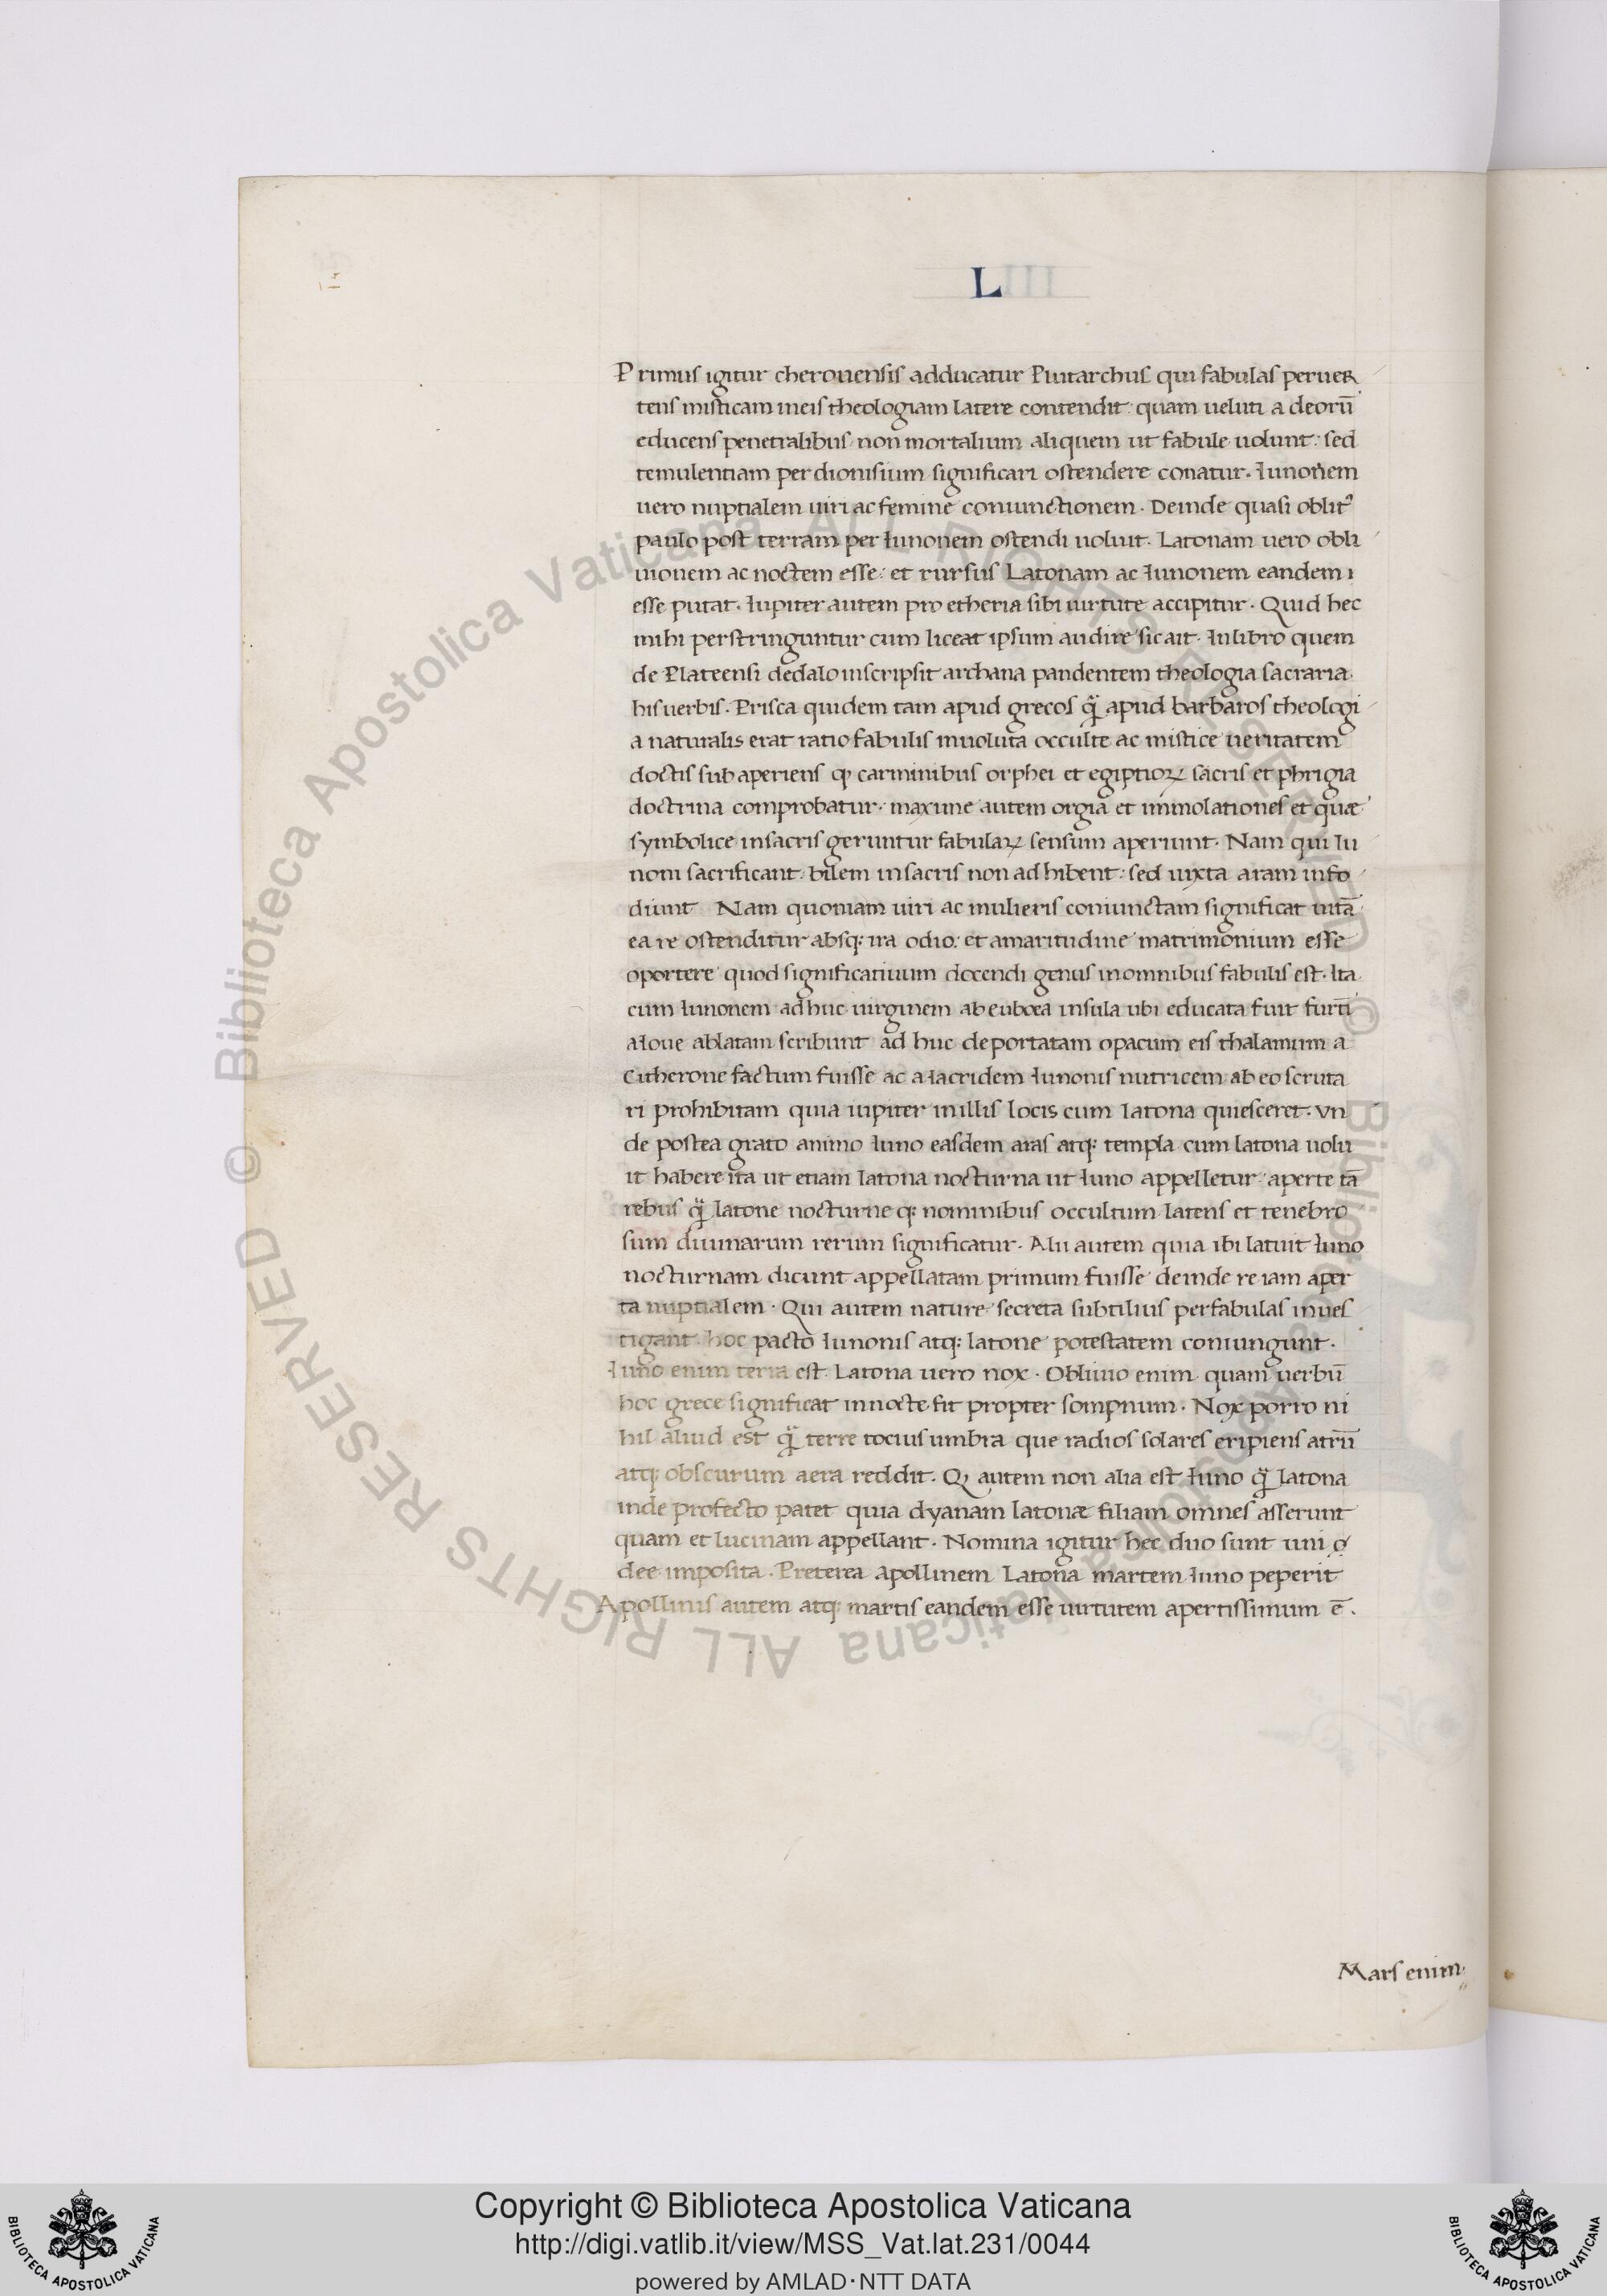 LIII
Primus igitur cheronensis adducatur Plutarchus qui fabulas peruer
tens misticam in eis theologiam latere contendit: quam ueluti a deorū
educens penetralibus non mortalium aliquem ut fabule uolunt: sed
temulentiam per dionisium significari ostendere conatur. Iunonem
uero nuptialem uiri ac femine coniunctionem. Deinde quasi oblitꝰ
paulo post terram per Iunonem ostendi uoluit. Latonam uero obli
uionem ac noctem esse: et rursus Latonam ac Iunonem eandem
esse putat. Iupiter autem pro etheria sibi uirtute accipitur. Quid hec
mihi perstringuntur cum liceat ipsum audire sic ait. In libro quem
de Plateensi dedalo inscripsit archana pandentem theologia sacraria
his uerbis. Prisca quidem tam apud grecos q̃ apud barbaros theologi
a naturalis erat ratio fabulis inuoluta occulte ac mistice ueritatem
doctis sub aperiens ꝙ carminibus orphei et egiptioꝝ sacris et phrigia
doctrina comprobatur. maxime autem orgia et immolationes et quæ
symbolice in sacris geruntur fabulaꝝ sensum aperiunt. Nam qui Iu
noni sacrificant: bilem in sacris non adhibent: sed iuxta aram info
diunt Nam quoniam uiri ac mulieris coniunctam significat uitā
ea re ostenditur absq; ira odio: et amaritudine matrimonium esse
oportere quod significatiuum docendi genus in omnibus fabulis est. Ita
cum Iunonem adhuc uirginem ab euboea insula ubi educata fuit furtī
a Ioue ablatam scribunt ad huc deportatam opacum eis thalamum a
Citherone factum fuisse ac a Iacridem Iunonis nutricem ab eo scruta
ri prohibitam quia iupiter in illis locis cum latona quiesceret. vn
de postea grato animo Iuno easdem aras atq; templa cum latona uolu
it habere ita ut etiam latona nocturna ut Iuno appelletur: aperte tā
rebus q̃ latone nocturne q; nominibus occultum latens et tenebro
sum diuinarum rerum significatur. Alii autem quia ibi latuit Iuno
nocturnam dicunt appellatam primum fuisse deinde re iam aper
ta nuptialem. Qui autem nature secreta subtilius per fabulas inues
tigant hoc pacto Iunonis atq; latone potestatem coniungunt.
Iuno enim terra est. Latona uero nox. Obliuio enim quam uerbū
hoc grece significat in nocte fit propter sompnum. Nox porro ni
hil aliud est q̃ terre tocius umbra que radios solares eripiens atrū
atq; obscurum aera reddit. Ꝙ autem non alia est Iuno q̃ latona
inde profecto patet quia dyanam latonæ filiam omnes asserunt
quam et lucinam appellant. Nomina igitur hec duo sunt uni
dee imposita. Preterea Apollinem Latona martem Iuno peperit
Apollinis autem atq; martis eandem esse uirtutem apertissimum ē.
Mars enim
© Biblioteca Apostolica Vaticana ALL RIGHTS RESERVED © Biblioteca Apostolica Vaticana ALL RIGHTS RESERVED
Copyright © Biblioteca Apostolica Vaticana
http://digi.vatlib.it/view/MSS_Vat.lat.231/0044
powered by AMLAD·NTT DATA
BIBLIOTECA APOSTOLICA VATICANA
BIBLIOTECA APOSTOLICA VATICANA